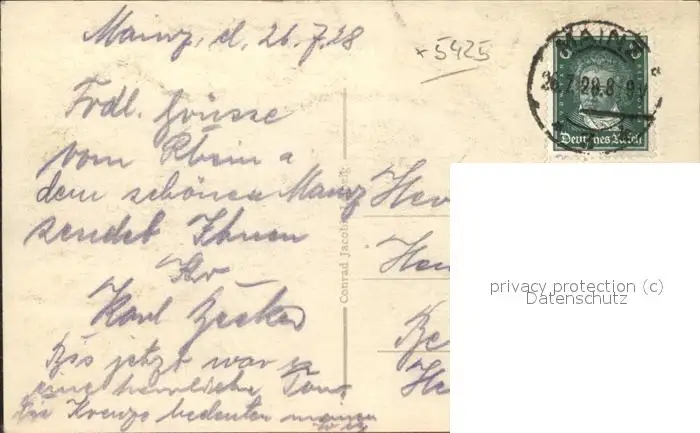 Mainz, d. 26.7.28
x 5425
MAINZ
26.7.28.8-9V
Deutsches Reich
Frdl. Grüsse
vom Rhein u
dem schönen Mainz
sendet Ihnen
Ihr
Karl Becker
Bis jetzt war es
eine herrliche Tour
Die Kreuze bedeuten meinen
Conrad Jacobi
Her
Her
privacy protection (c)
Datenschutz